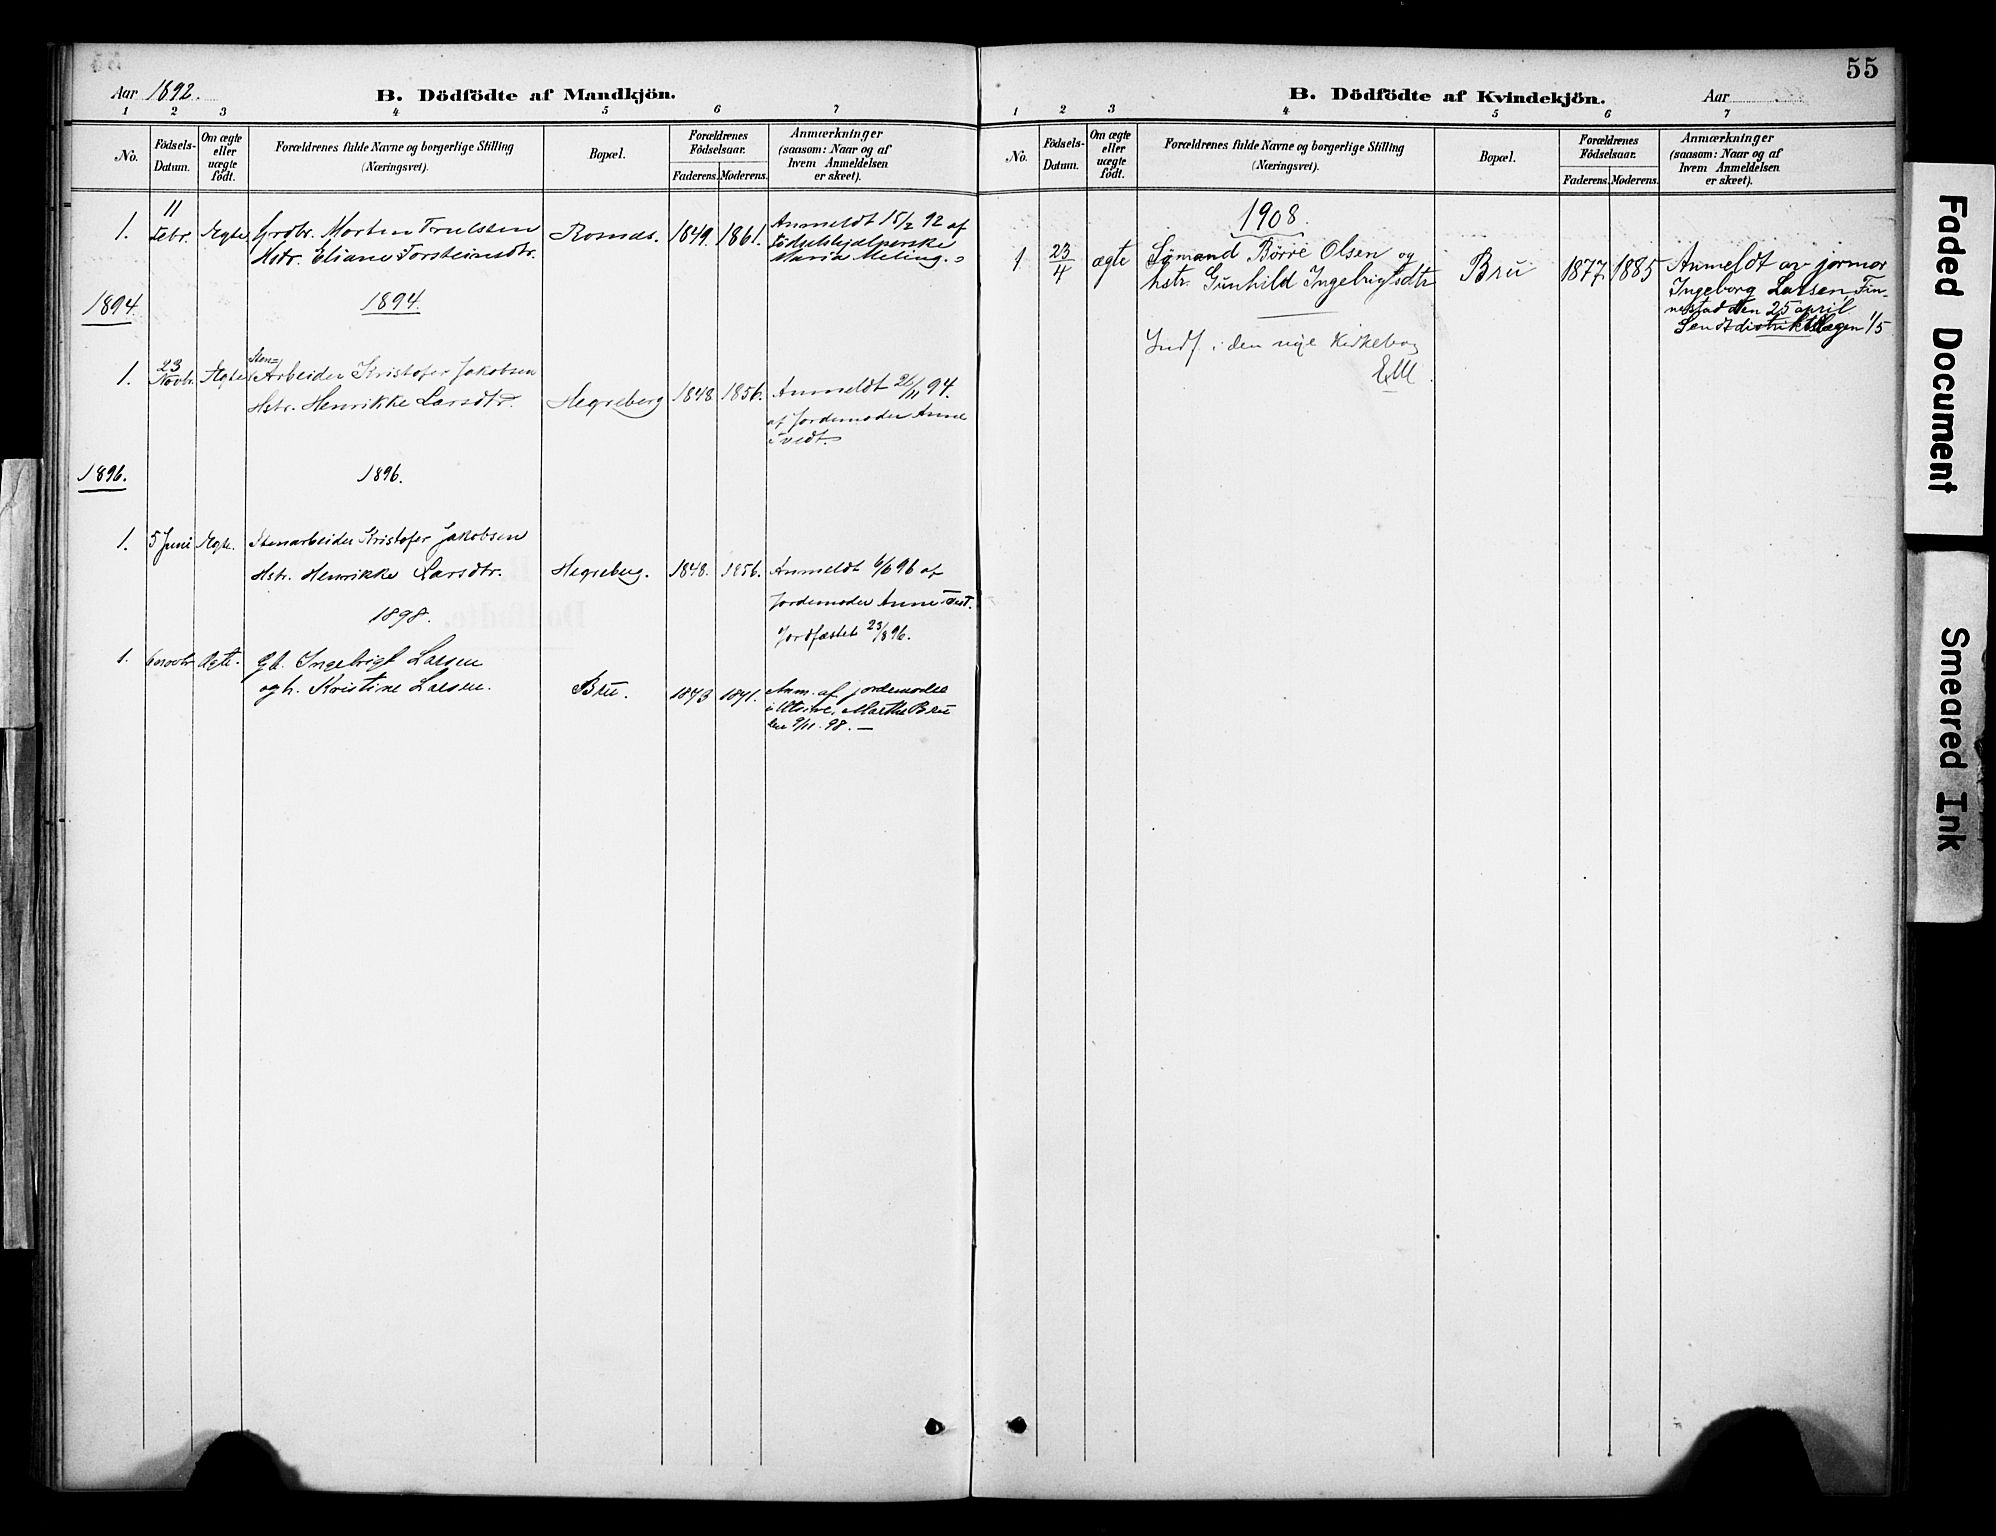 Aar 1892.
B. Dödfödte af Mandkjön.
1 2 3 4 5 6 7
No.
Födsels-Datum.
Om ægte eller uægte födt.
Forældrenes fulde Navne og borgerlige Stilling
(Næringsvei).
Bopæl.
Forældrenes Födselsaar.
Faderens. Moderens.
Anmærkninger
(saasom: Naar og af
hvem Anmeldelsen
er skeet).
1. 11 Febr. Ægte Grdbr. Morten Trulssen
Hstr. Eliane Torsteinsdtr.
1849. 1861.
Anmeldt 15/2 92 af
Födselshjælperske
Maria Meling.
1894. 1894.
1. 23 Novbr. Ægte Sten=
Arbeider Kristofer Jakobsen
Hstr. Henrikke Larsdtr.
Hegreberg 1848 1856.
Anmeldt 26/11 94.
af Jordemoder Anne
Tvedt.
1896. 1896.
1. 5 Juni Ægte. Stenarbeider Kristofer Jakobsen
Hstr. Henrikke Larsdtr.
Hegreberg. 1848. 1856.
Anmeldt 6/6 96 af
Jordemoder Anne Tvedt.
Jordfæstet 23/8 96.
1898.
1. 6 novbr Ægte. Gb. Ingebrigt Larsen
og h. Kristine Larsen.
Bru. 1843 1871.
Anm. af jordemoder
i Utstene, Marthe Bru
den 9/11 98. —
55
B. Dödfödte af Kvindekjön.
Aar
1 2 3 4 5 6 7
No.
Födsels-Datum.
Om ægte eller uægte födt.
Forældrenes fulde Navne og borgerlige Stilling
(Næringsvei).
Bopæl.
Forældrenes Födselsaar.
Faderens. Moderens.
Anmærkninger
(saasom: Naar og af
hvem Anmeldelsen
er skeet).
1908.
1 23/4 ægte Sømand Børre Olsen og
hstr. Gunhild Ingebrigtsdtr
Bru 1877 1885
Anmeldt av jormor
Ingeborg Larsen, Fin-
nestad den 25 april
Sendt distriktslægen 1/5
Indf. i den nye Kirkebog
EM.
Faded Document
Smeared Ink